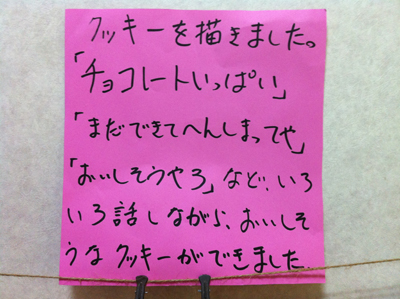 クッキーを描きました。
「チョコレートいっぱい」
「まだできてへんしまってや」
「おいしそうやろ」など、いろ
いろ話しながら、おいしそ
うなクッキーができました